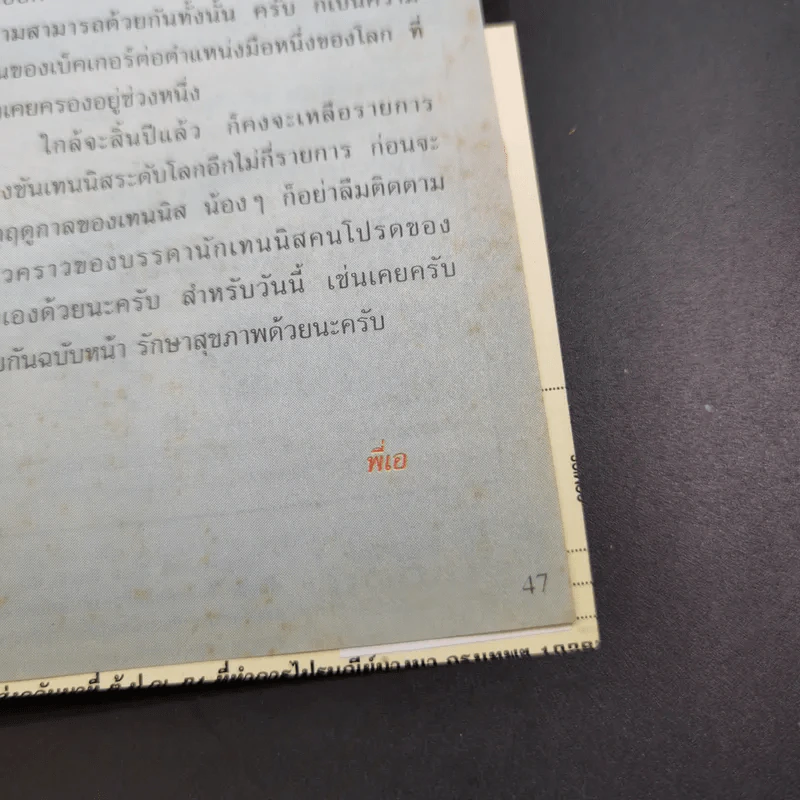 ามสามารถด้วยกันทั้งนั้น ครับ ก็เป็นความ
นของเบ็คเกอร์ต่อตำแหน่งมือหนึ่งของโลก ที่
เคยครองอยู่ช่วงหนึ่ง
ใกล้จะสิ้นปีแล้ว ก็คงจะเหลือรายการ
งขันเทนนิสระดับโลกอีกไม่กี่รายการ ก่อนจะ
ฤดูกาลของเทนนิส น้องๆ ก็อย่าลืมติดตาม
วคราวของบรรดานักเทนนิสคนโปรดของ
เองด้วยนะครับ สำหรับวันนี้ เช่นเคยครับ
กันฉบับหน้า รักษาสุขภาพด้วยนะครับ
พี่เอ
47
ที่ทำการไปรษณีย์บางนา กรุงเทพฯ